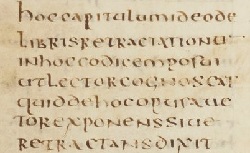 hoccapitulumideode
librisretractationu
inhoccodicemposui
utlectorcognoscat
quiddehocopusauc
torexponenssiue
retractansdixit